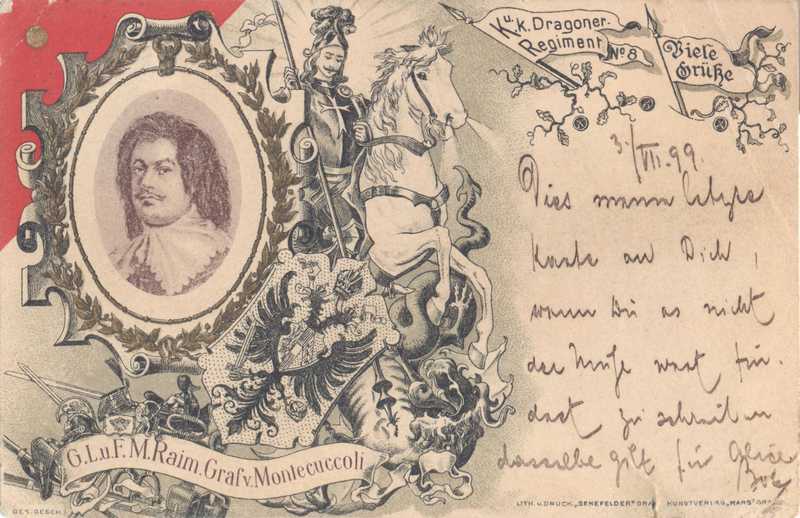 K.u.k. Dragoner-
Regiment No 8
Viele
Grüße
3./VII. 99.
Dies meine letzte
Karte an Dich,
wenn Du es nicht
der Mühe wert fin-
dest zu schreiben
dasselbe gilt für
G.L.u.F.M.Raim.Graf v.Montecuccoli
GES. GESCH.
LITH. u. DRUCK „SENEFELDER" GRAZ KUNSTVERLAG „MARS"